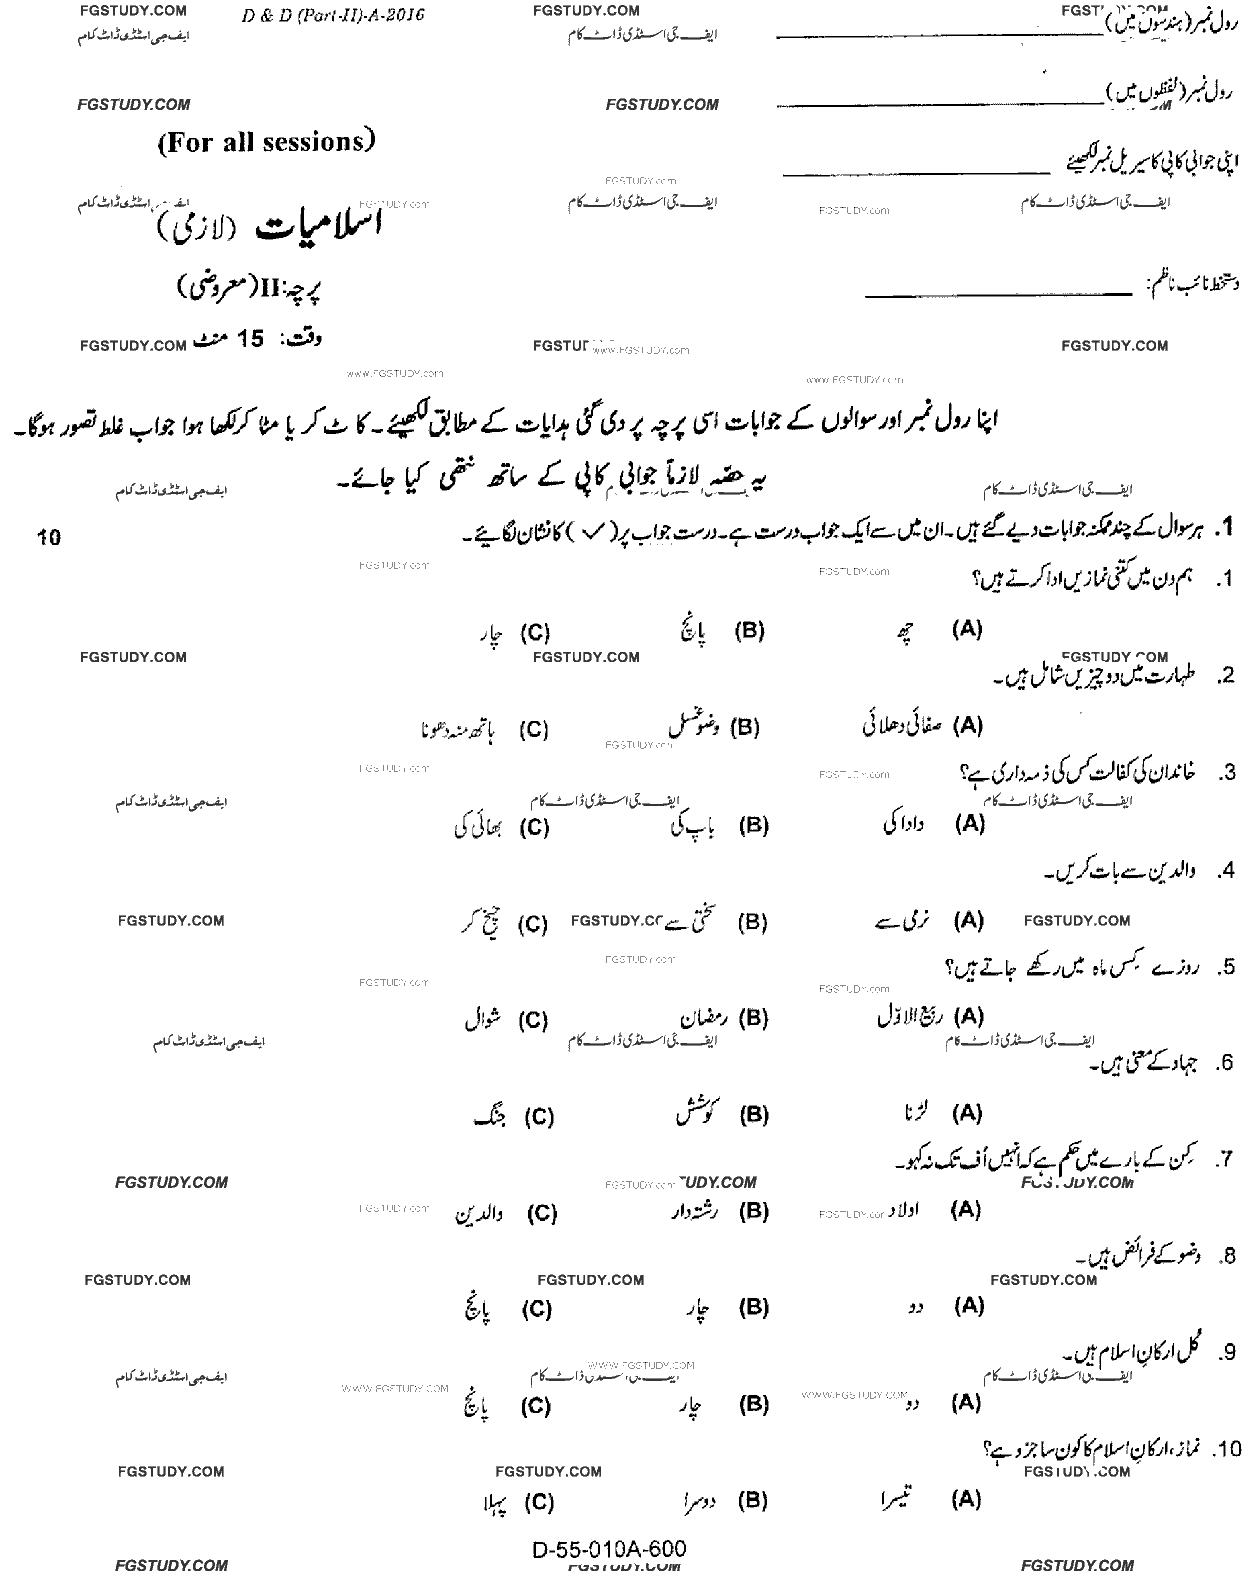 FGSTUDY.COM D & D (Part-II)-A-2016 FGSTUDY.COM
رول نمبر (ہندسوں میں)
ایف جی اسٹڈی ڈاٹ کام ایف جی اسٹڈی ڈاٹ کام
رول نمبر (لفظوں میں)
FGSTUDY.COM FGSTUDY.COM
(For all sessions)
اپنی جوابی کاپی کا سیریل نمبر لکھیئے
FGSTUDY.com
ایف جی اسٹڈی ڈاٹ کام FGSTUDY.com ایف جی اسٹڈی ڈاٹ کام
اسلامیات (لازمی)
پرچہ: II (معروضی)
دستخط نائب ناظم:
وقت: 15 منٹ
FGSTUDY.COM www.FGSTUDY.com FGSTUDY.COM
www.FGSTUDY.com www.FGSTUDY.com
اپنا رول نمبر اور سوالوں کے جوابات اسی پرچہ پر دی گئی ہدایات کے مطابق لکھیئے۔ کاٹ کر یا مٹا کر لکھا ہوا جواب غلط تصور ہوگا۔
یہ حصّہ لازماً جوابی کاپی کے ساتھ نتھی کیا جائے۔
ایف جی اسٹڈی ڈاٹ کام ایف جی اسٹڈی ڈاٹ کام
1. ہر سوال کے چند ممکنہ جوابات دیے گئے ہیں۔ ان میں سے ایک جواب درست ہے۔ درست جواب پر (✓) کا نشان لگائیے۔ 10
FGSTUDY.com FGSTUDY.com
1. ہم دن میں کتنی نمازیں ادا کرتے ہیں؟
(A) چھ (B) پانچ (C) چار
FGSTUDY.COM FGSTUDY.COM FGSTUDY.COM
2. طہارت میں دو چیزیں شامل ہیں۔
(A) صفائی دھلائی (B) وضو غسل (C) ہاتھ منہ دھونا
FGSTUDY.com
3. خاندان کی کفالت کس کی ذمہ داری ہے؟
FGSTUDY.com FGSTUDY.com
ایف جی اسٹڈی ڈاٹ کام ایف جی اسٹڈی ڈاٹ کام ایف جی اسٹڈی ڈاٹ کام
(A) دادا کی (B) باپ کی (C) بھائی کی
4. والدین سے بات کریں۔
FGSTUDY.COM (A) نرمی سے (B) سختی سے (C) چیخ کر FGSTUDY.COM
FGSTUDY.com
5. روزے کِس ماہ میں رکھے جاتے ہیں؟
FGSTUDY.com FGSTUDY.com
(A) ربیع الاوّل (B) رمضان (C) شوال
ایف جی اسٹڈی ڈاٹ کام ایف جی اسٹڈی ڈاٹ کام ایف جی اسٹڈی ڈاٹ کام
6. جہاد کے معنی ہیں۔
(A) لڑنا (B) کوشش (C) جنگ
7. کِن کے بارے میں حکم ہے کہ انہیں اُف تک نہ کہو۔
FGSTUDY.COM FGSTUDY.com
(A) اولاد (B) رشتہ دار (C) والدین
FGSTUDY.com
8. وضو کے فرائض ہیں۔
FGSTUDY.COM FGSTUDY.COM FGSTUDY.COM
(A) دو (B) چار (C) پانچ
9. کُل ارکانِ اسلام ہیں۔
WWW.FGSTUDY.COM
ایف جی اسٹڈی ڈاٹ کام ایف جی اسٹڈی ڈاٹ کام
WWW.FGSTUDY.COM WWW.FGSTUDY.COM
(A) دو (B) چار (C) پانچ
10. نماز، ارکانِ اسلام کا کون سا جزو ہے؟
FGSTUDY.COM FGSTUDY.COM FGSTUDY.COM
(A) تیسرا (B) دوسرا (C) پہلا
D-55-010A-600
FGSTUDY.COM FGSTUDY.COM FGSTUDY.COM